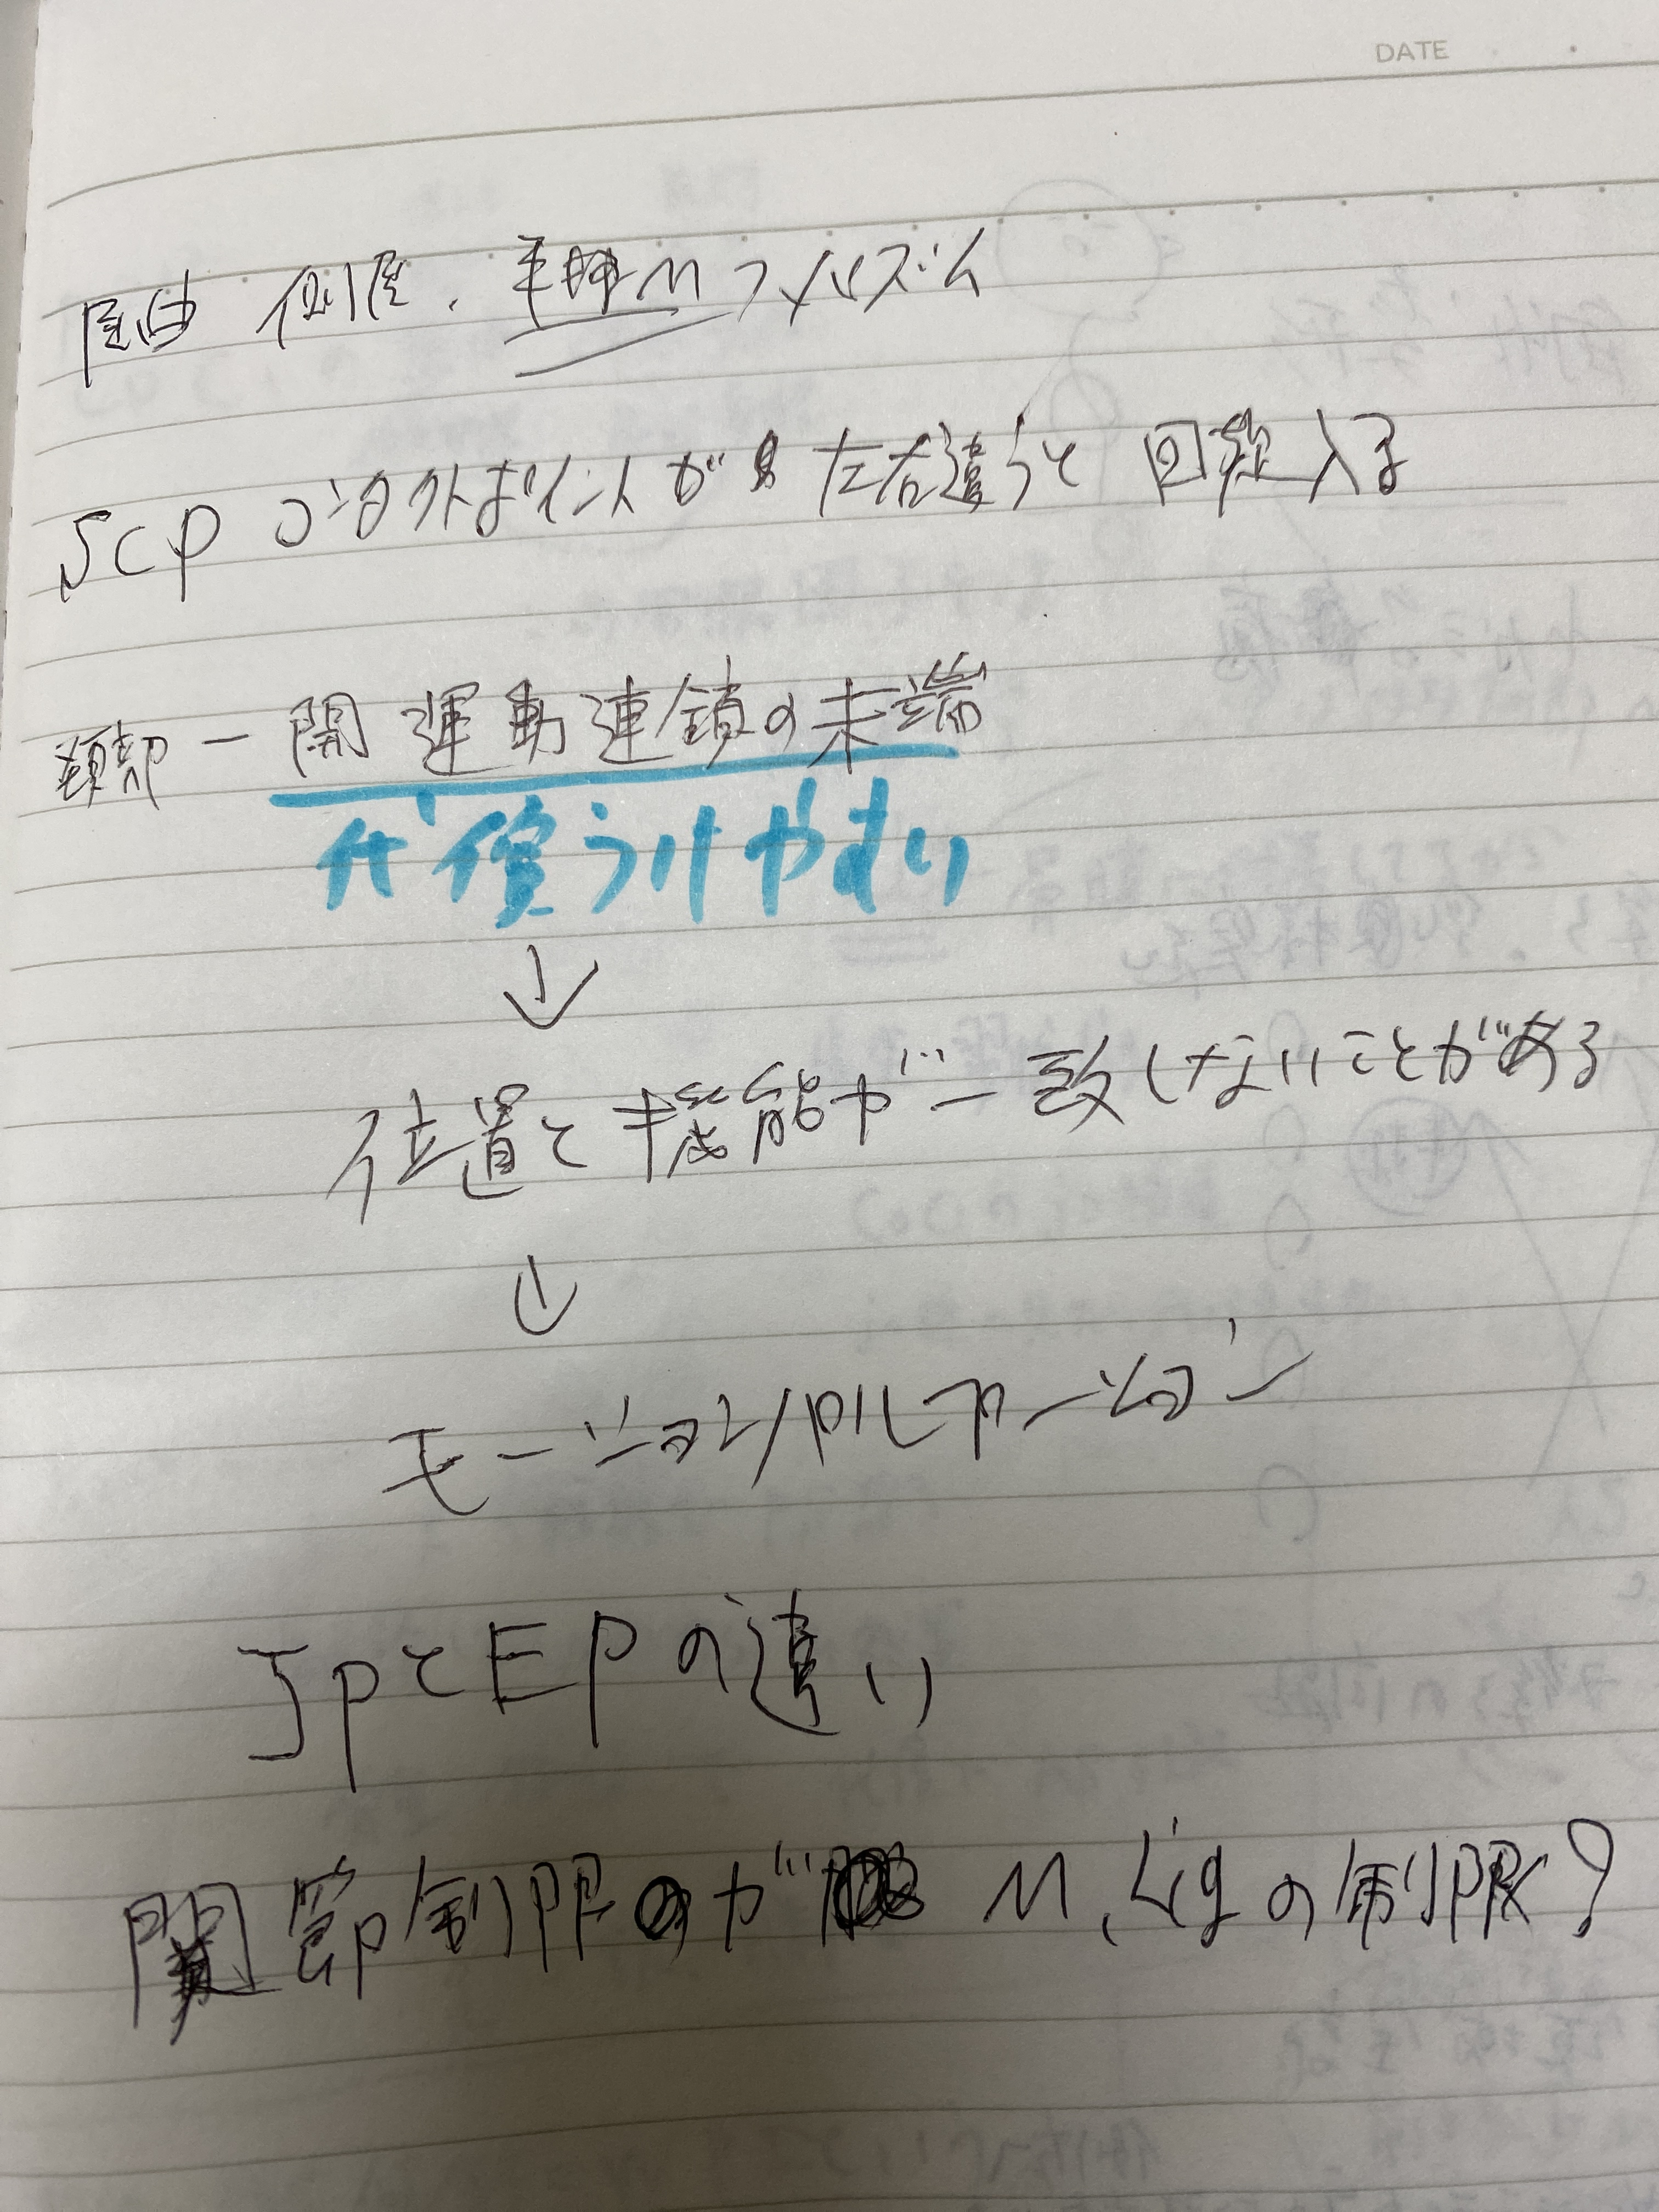 DATE
屈曲 側屈、 Mスパズム
SCP コンタクトポイントが 左右違うと 回旋入る
頚部 ー 開運動連鎖の末端
代償うけやすい
↓
位置と機能が一致しないことがある
↓
モーションパルペーション
JPとEPの違い
関節制限が M、Ligの制限?